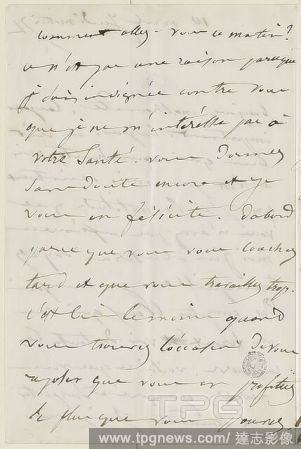 comment allez-vous ce matin?
ce n'est pas une raison parceque
je suis indignée contre vous
que je ne m'intéresse pas à
votre santé. vous dormez
sans doute encore et je
vous en félicite. d'abord
parce que vous vous couchez
tard et que vous travaillez trop.
c'est bien le moins quand
vous trouvez l'occasion de vous
reposer que vous en profitiez
de plus que vous pouvez
TPG
www.tpgnews.com/達志影像